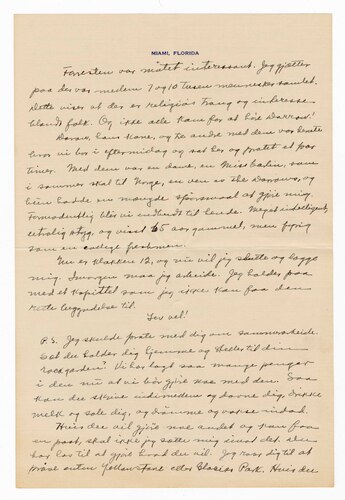 MIAMI, FLORIDA
Forresten var møtet interessant. Jeg gjætter
paa der var mellem 7 og 10 tusen mennesker samlet.
dette viser at der er religiøs trang og interesse
blandt folk. Og ikke alle kom for at høre Darrow!
Darrow, hans Kone, og de andre med dem var
hvor vi bor i eftermiddag og sat her og pratet et par
timer. Med dem var en dame, en Miss som
i sommer skal til Norge, en ven av the Darrows, og
hun hadde en mængde spørsmaal at gjøre mig.
Formodentlig blir vi indbudt til hende. Meget intelligent,
og visst 65 aar gammel, men fyrig
som en freshman.
Nu er klokken 12, og nu vil jeg slutte og lægge
mig. Imorgen maa jeg arbeide. Jeg holder paa
med et kapittel som jeg ikke kan faa den
rette begyndelse til.
Lev vel!
P.S. Jeg skulde prate med dig om sommerarbeide.
Hvad du kalder dig Gjemme og til din
"rockgarden"? Vi har lagt saa mange penger
i den nu at vi bør gjøre noe med den. Saa
kan du skrive indimellem og dovne dig, drikke
melk og sole dig, og drømme og være indad.
Hvis du vil gjøre noe andet og kan faa
en post, skal ikke jeg sætte mig imot det den
har lov til at gjøre hvad du vil. Jeg raar dig til at
prøve enten Yellow Stone eller Glacier Park. Hvis du